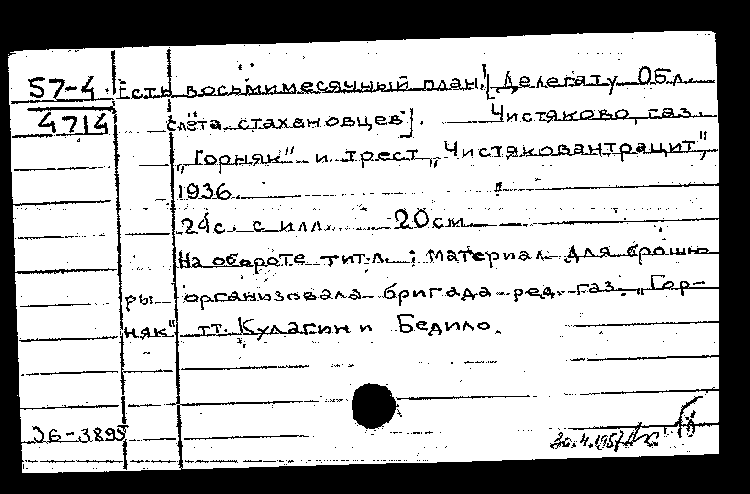 57-4 Есть восьмимесячный план. [Делегату Обл.
4714 слёта стахановцев]. Чистяково, газ.
„Горняк" и трест „Чистяковантрацит",
1936.
24с. с илл. 20см.
На обороте тит.л.: материал для брошю-
ры организовала бригада ред. газ. „Гор-
няк" тт. Кулагин и Бедило.
36-3895
30.4.1957